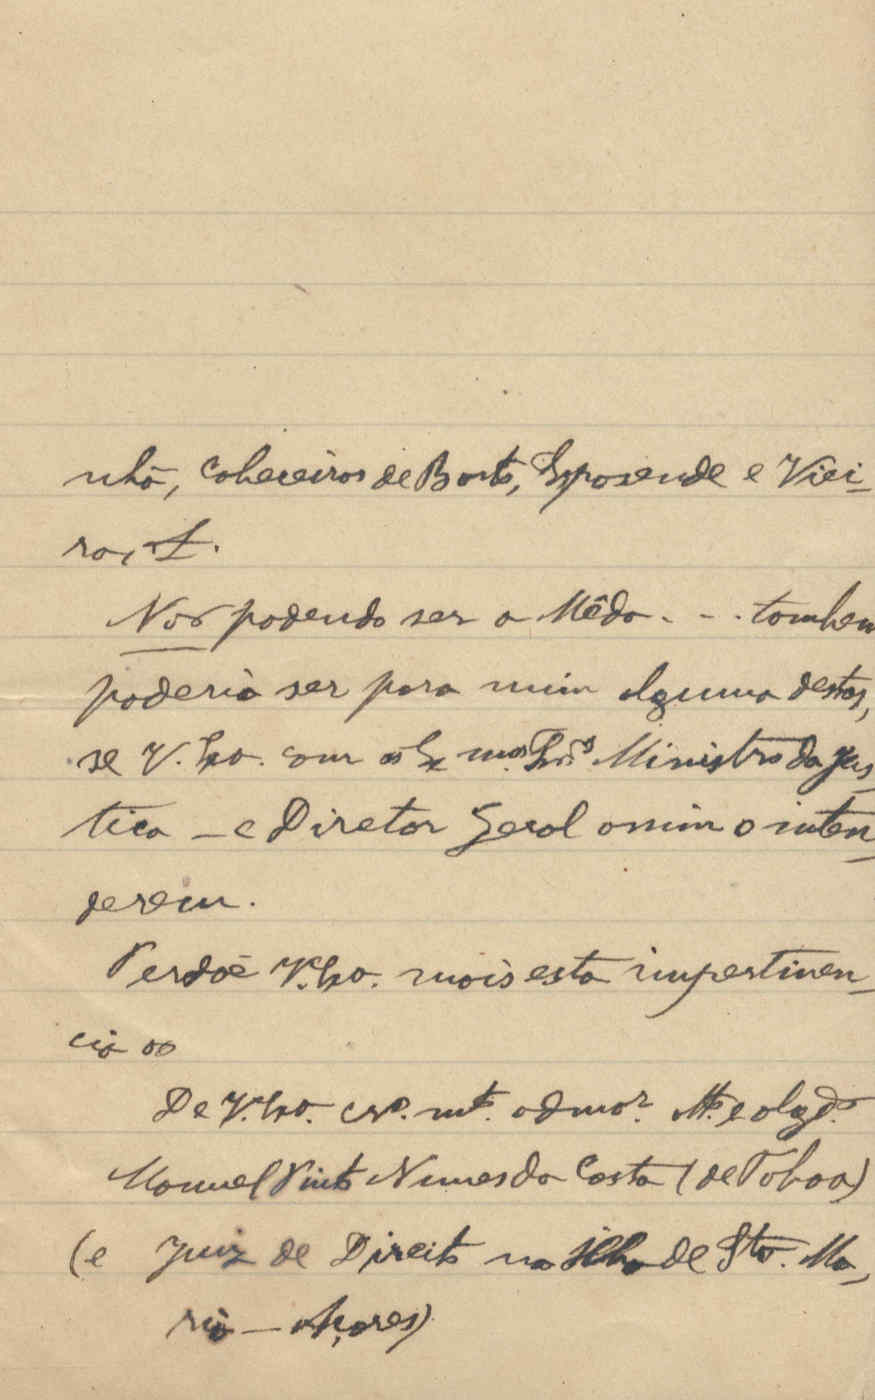 nhã, Cabeceiros de Basto, Espozende e Viei-
ra,
Não podendo ser a Mêda... tambem
poderia ser para mim alguma destas,
se V. Exa. com os Exmos. Snrs. Ministro da Jus-
tiça — e Diretor Geral assim o inten-
derem.
Perdoe V. Exa. mais esta impertinen-
cia ao
De V. Exa. cro. mto. admor. Mto. e obrgdo.
Manuel Pinto Nunes da Costa (de Taboa)
(e Juiz de Direito na Ilha de Sta. Ma-
ria — Açores)